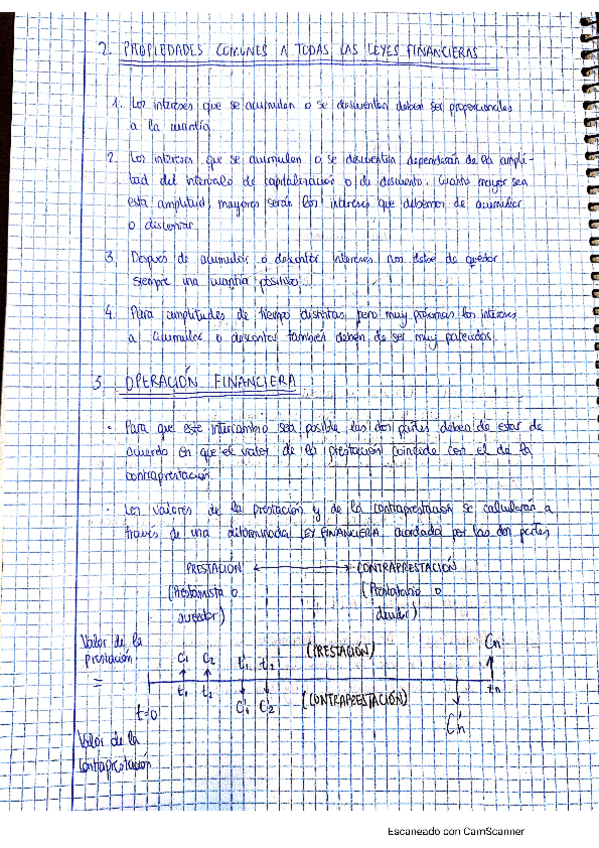 2. PROPIEDADES COMUNES A TODAS LAS LEYES FINANCIERAS
1. Los intereses que se acumulan o se descuentan deben ser proporcionales
a la cuantía
2. Los intereses que se acumulan o se descuentan dependerán de la ampli-
tud del intervalo de capitalización o de descuento. Cuanto mayor sea
esta amplitud, mayores serán los intereses que debemos de acumular
o descontar
3. Después de acumular o descontar intereses nos debe de quedar
siempre una cuantía positiva.
4. Para amplitudes de tiempo distintas pero muy próximas los intereses
a acumular o descontar también deben de ser muy parecidos.
3. OPERACIÓN FINANCIERA
· Para que este intercambio sea posible las dos partes deben de estar de
acuerdo en que el valor de la prestación coincide con el de la
contraprestación
· Los valores de la prestación y de la contraprestación se calcularán a
través de una determinada LEY FINANCIERA acordada por las dos partes
PRESTACIÓN ←→ CONTRAPRESTACIÓN
(Prestamista o (Prestatario o
acreedor) deudor)
Valor de la
prestación
=
C1 C2 t'1 t'2 (PRESTACIÓN) Cn
t1 t2 C'1 C'2 (CONTRAPRESTACIÓN) tn
t=0 C'n
Valor de la
contraprestación
Escaneado con CamScanner